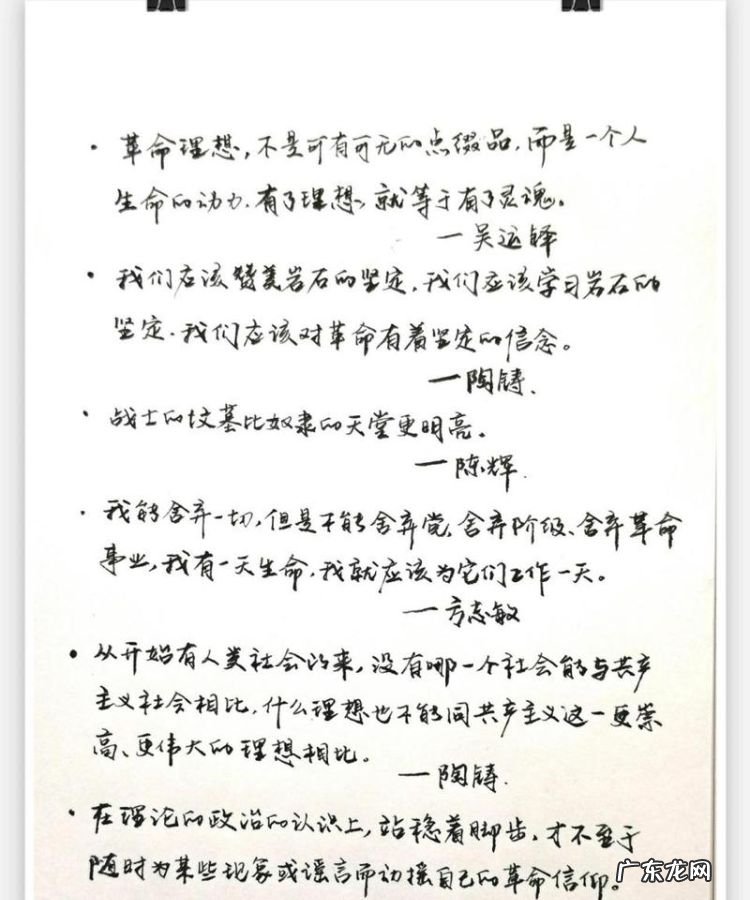 · 革命理想,不是可有可无的点缀品,而是一个人
生命的动力.有了理想,就等于有了灵魂。
—吴运铎
· 我们应该赞美岩石的坚定,我们应该学习岩石的
坚定.我们应该对革命有着坚定的信念。
—陶铸.
· 战士的坟墓比奴隶的天堂更明亮。
—陈辉.
· 我能舍弃一切,但是不能舍弃党,舍弃阶级、舍弃革命
事业,我有一天生命,我就应该为它们工作一天。
—方志敏
· 从开始有人类社会以来,没有哪一个社会能与共产
主义社会相比,什么理想也不能同共产主义这一更崇
高、更伟大的理想相比。
—陶铸.
· 在理论的政治的认识上,站稳着脚步,才不至于
随时为某些现象或谣言而动摇自己的革命信仰。
广东龙网